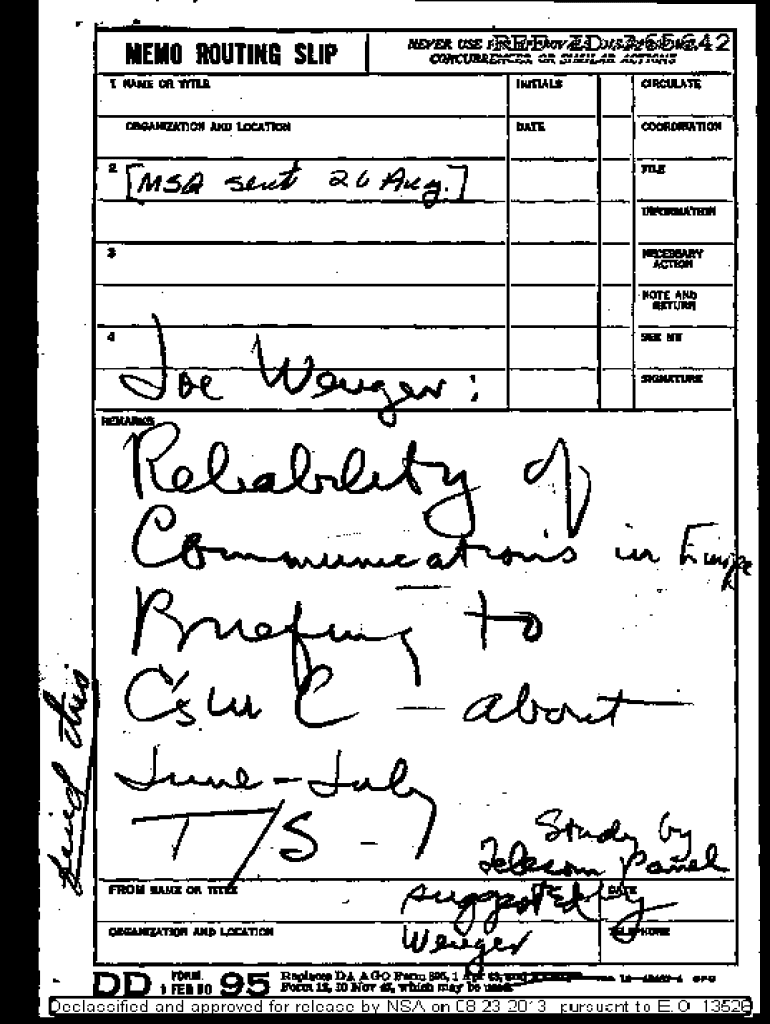 MEMO ROUTING SLIP
NEVER USE FOR
REF ID:A2665642
CONCURRENCES OR SIMILAR ACTIONS
1 NAME OR TITLE
INITIALS
CIRCULATE
ORGANIZATION AND LOCATION
DATE
COORDINATION
2
[MSA sent 26 Aug.]
FILE
INFORMATION
3
NECESSARY ACTION
NOTE AND RETURN
4
SEE ME
Joe Wenger:
SIGNATURE
REMARKS
Reliability of
Communications in Europe
Briefing to
C's in C — about
June - July
T/S -
Study by
Telecom Panel
suggested by
Wenger
send this
FROM NAME OR TITLE
DATE
ORGANIZATION AND LOCATION
TELEPHONE
DD FORM 1 FEB 50 95
Replaces DA AGO Form 895, 1 Apr 48, and
Form 12, 10 Nov 47, which may be used.
GPO
Declassified and approved for release by NSA on 08-23-2013 pursuant to E.O. 13526